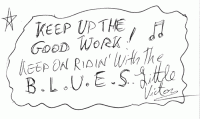 KEEP UP THE
GOOD WORK!
KEEP ON RIDIN' WITH THE
B.L.U.E.S. Little
Victor